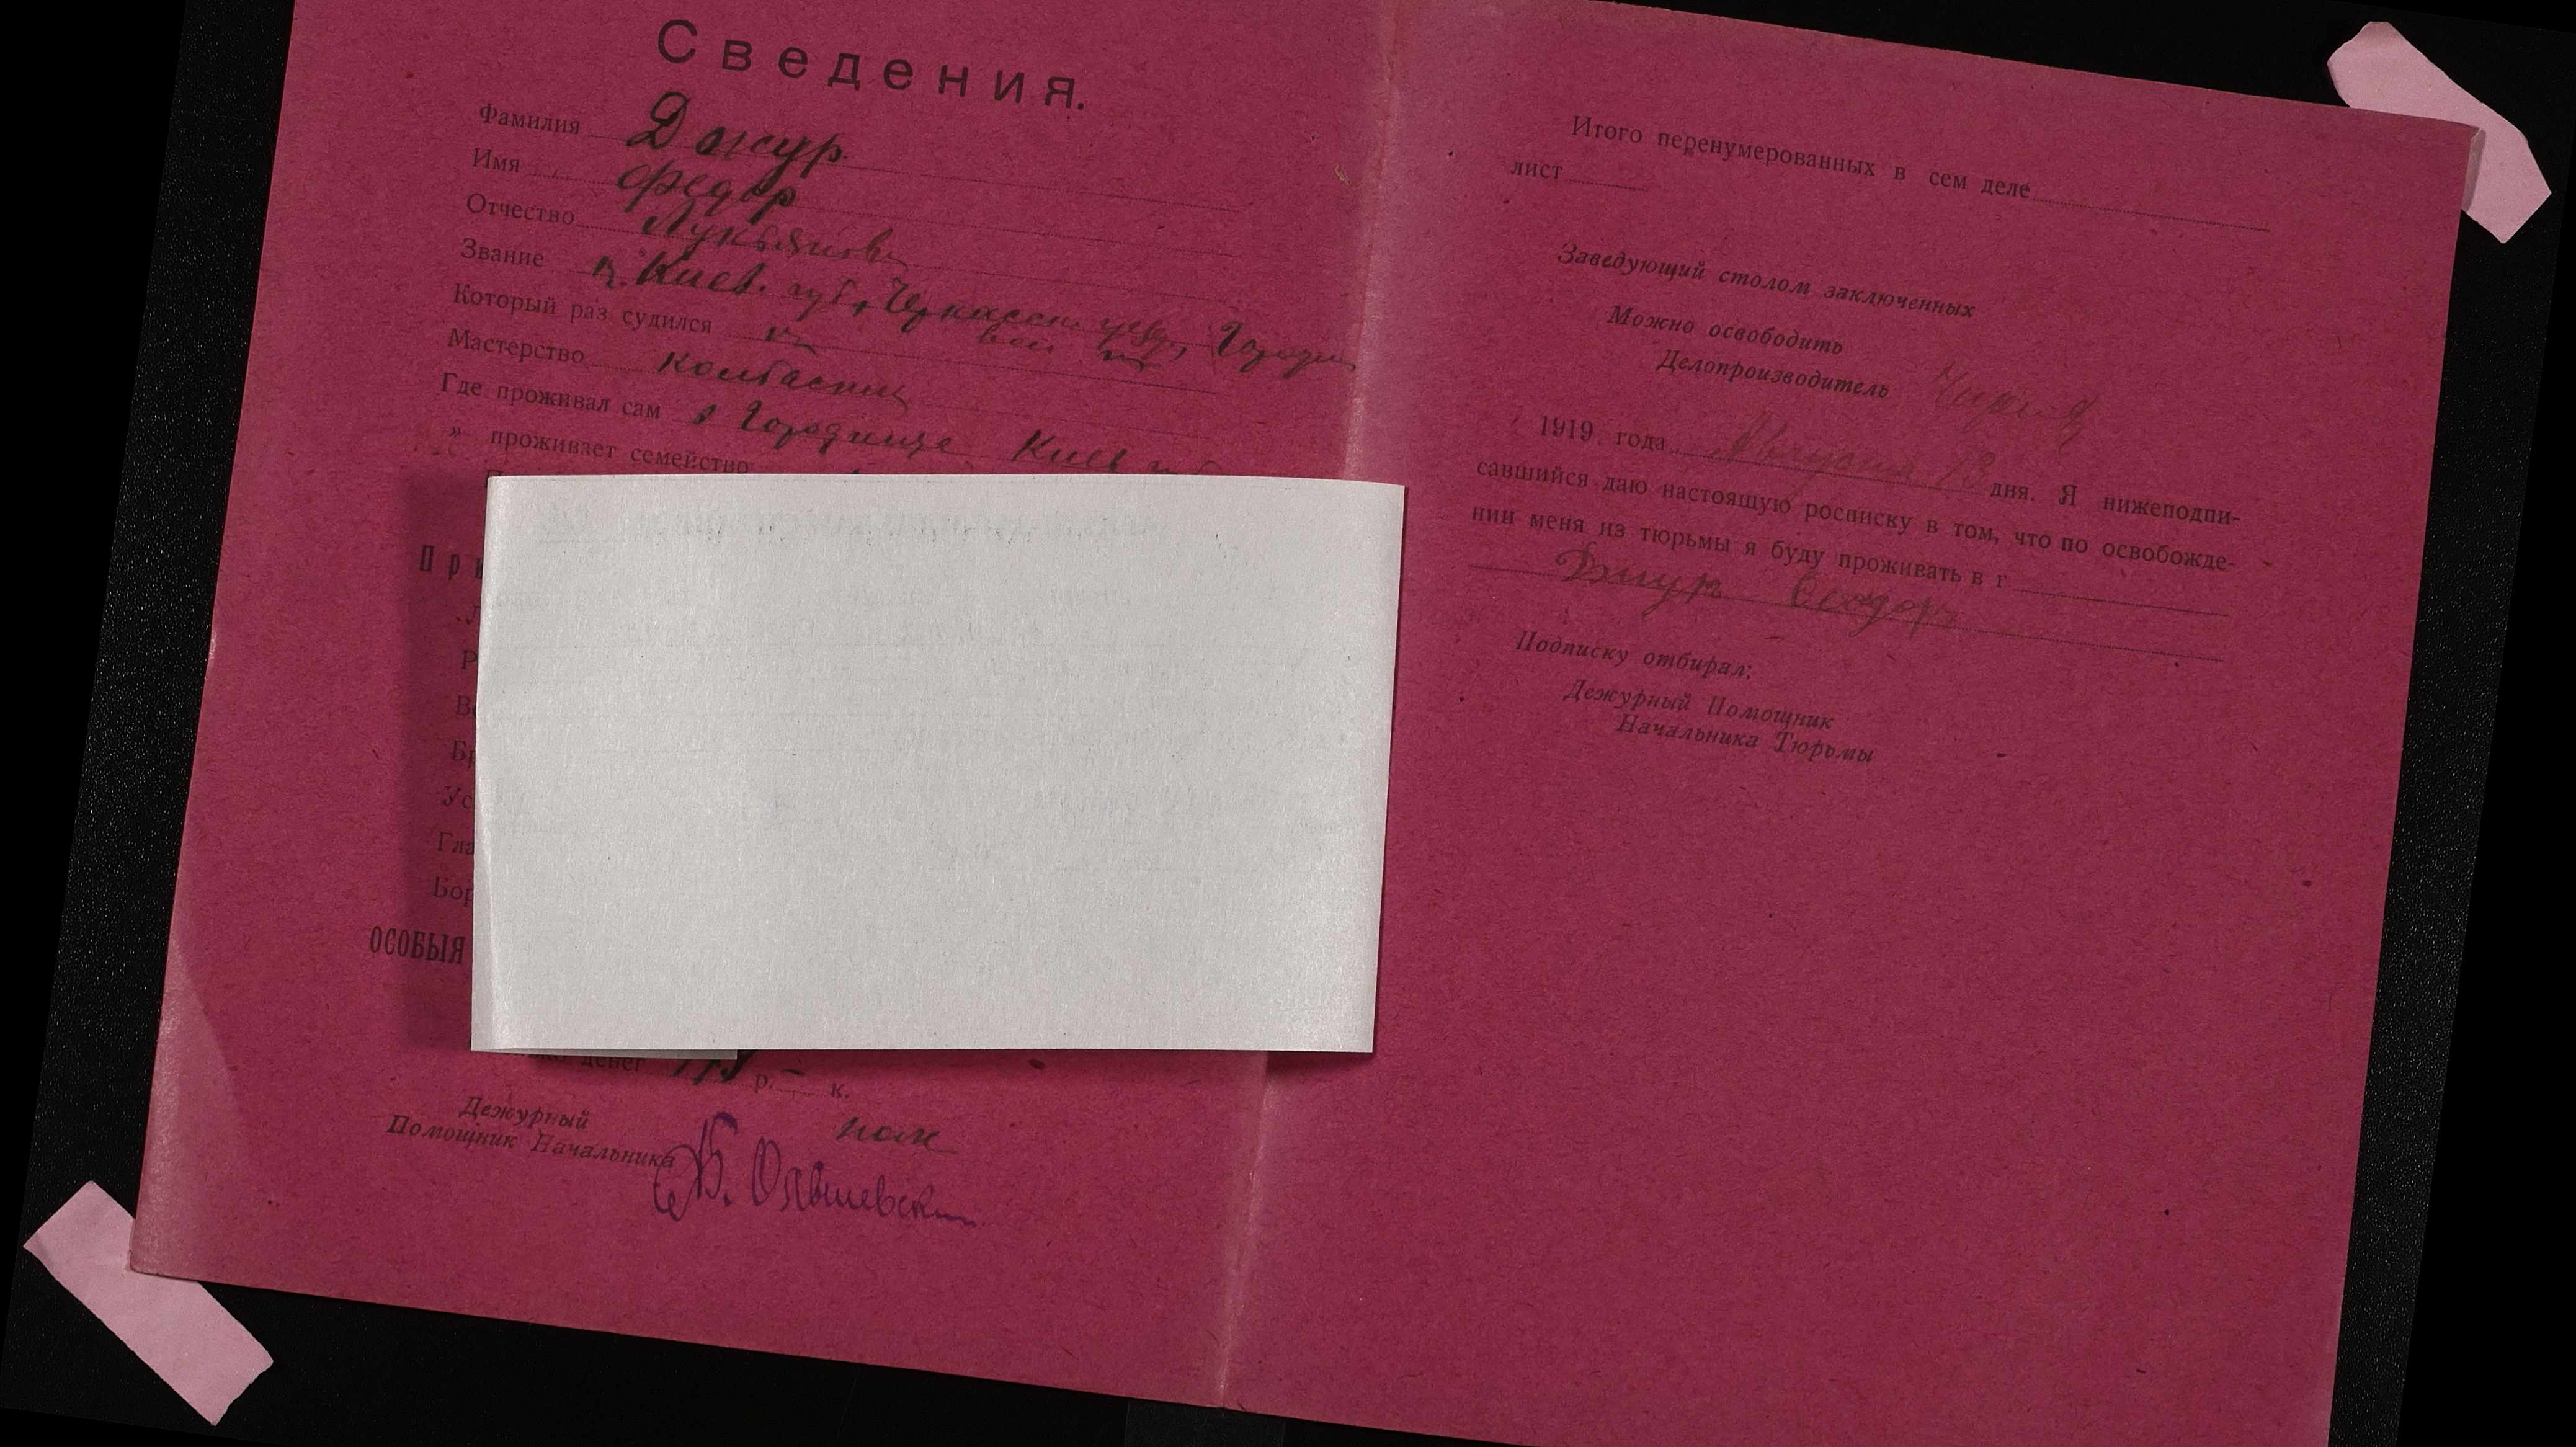 Сведения.
Фамилия Джур
Имя Федор
Отчество Лукьянов
Звание Киев. губ, Черкасск уезд,
Который раз судился
вой
Мастерство колбасник
Где проживал сам в Городище Киев губ
„ проживает семейство
При
Л
Р
Во
Бр
Ус
Гла
Бор
ОСОБЫЯ
денег р. – к.
Дежурный
Помощник Начальника
Итого перенумерованных в сем деле
лист
Заведующий столом заключенных
Можно освободить
Делопроизводитель
1919 года Августа 13 дня. Я нижеподпи-
савшийся даю настоящую росписку в том, что по освобожде-
нии меня из тюрьмы я буду проживать в г
Джур Феодор
Подписку отбирал:
Дежурный Помощник
Начальника Тюрьмы